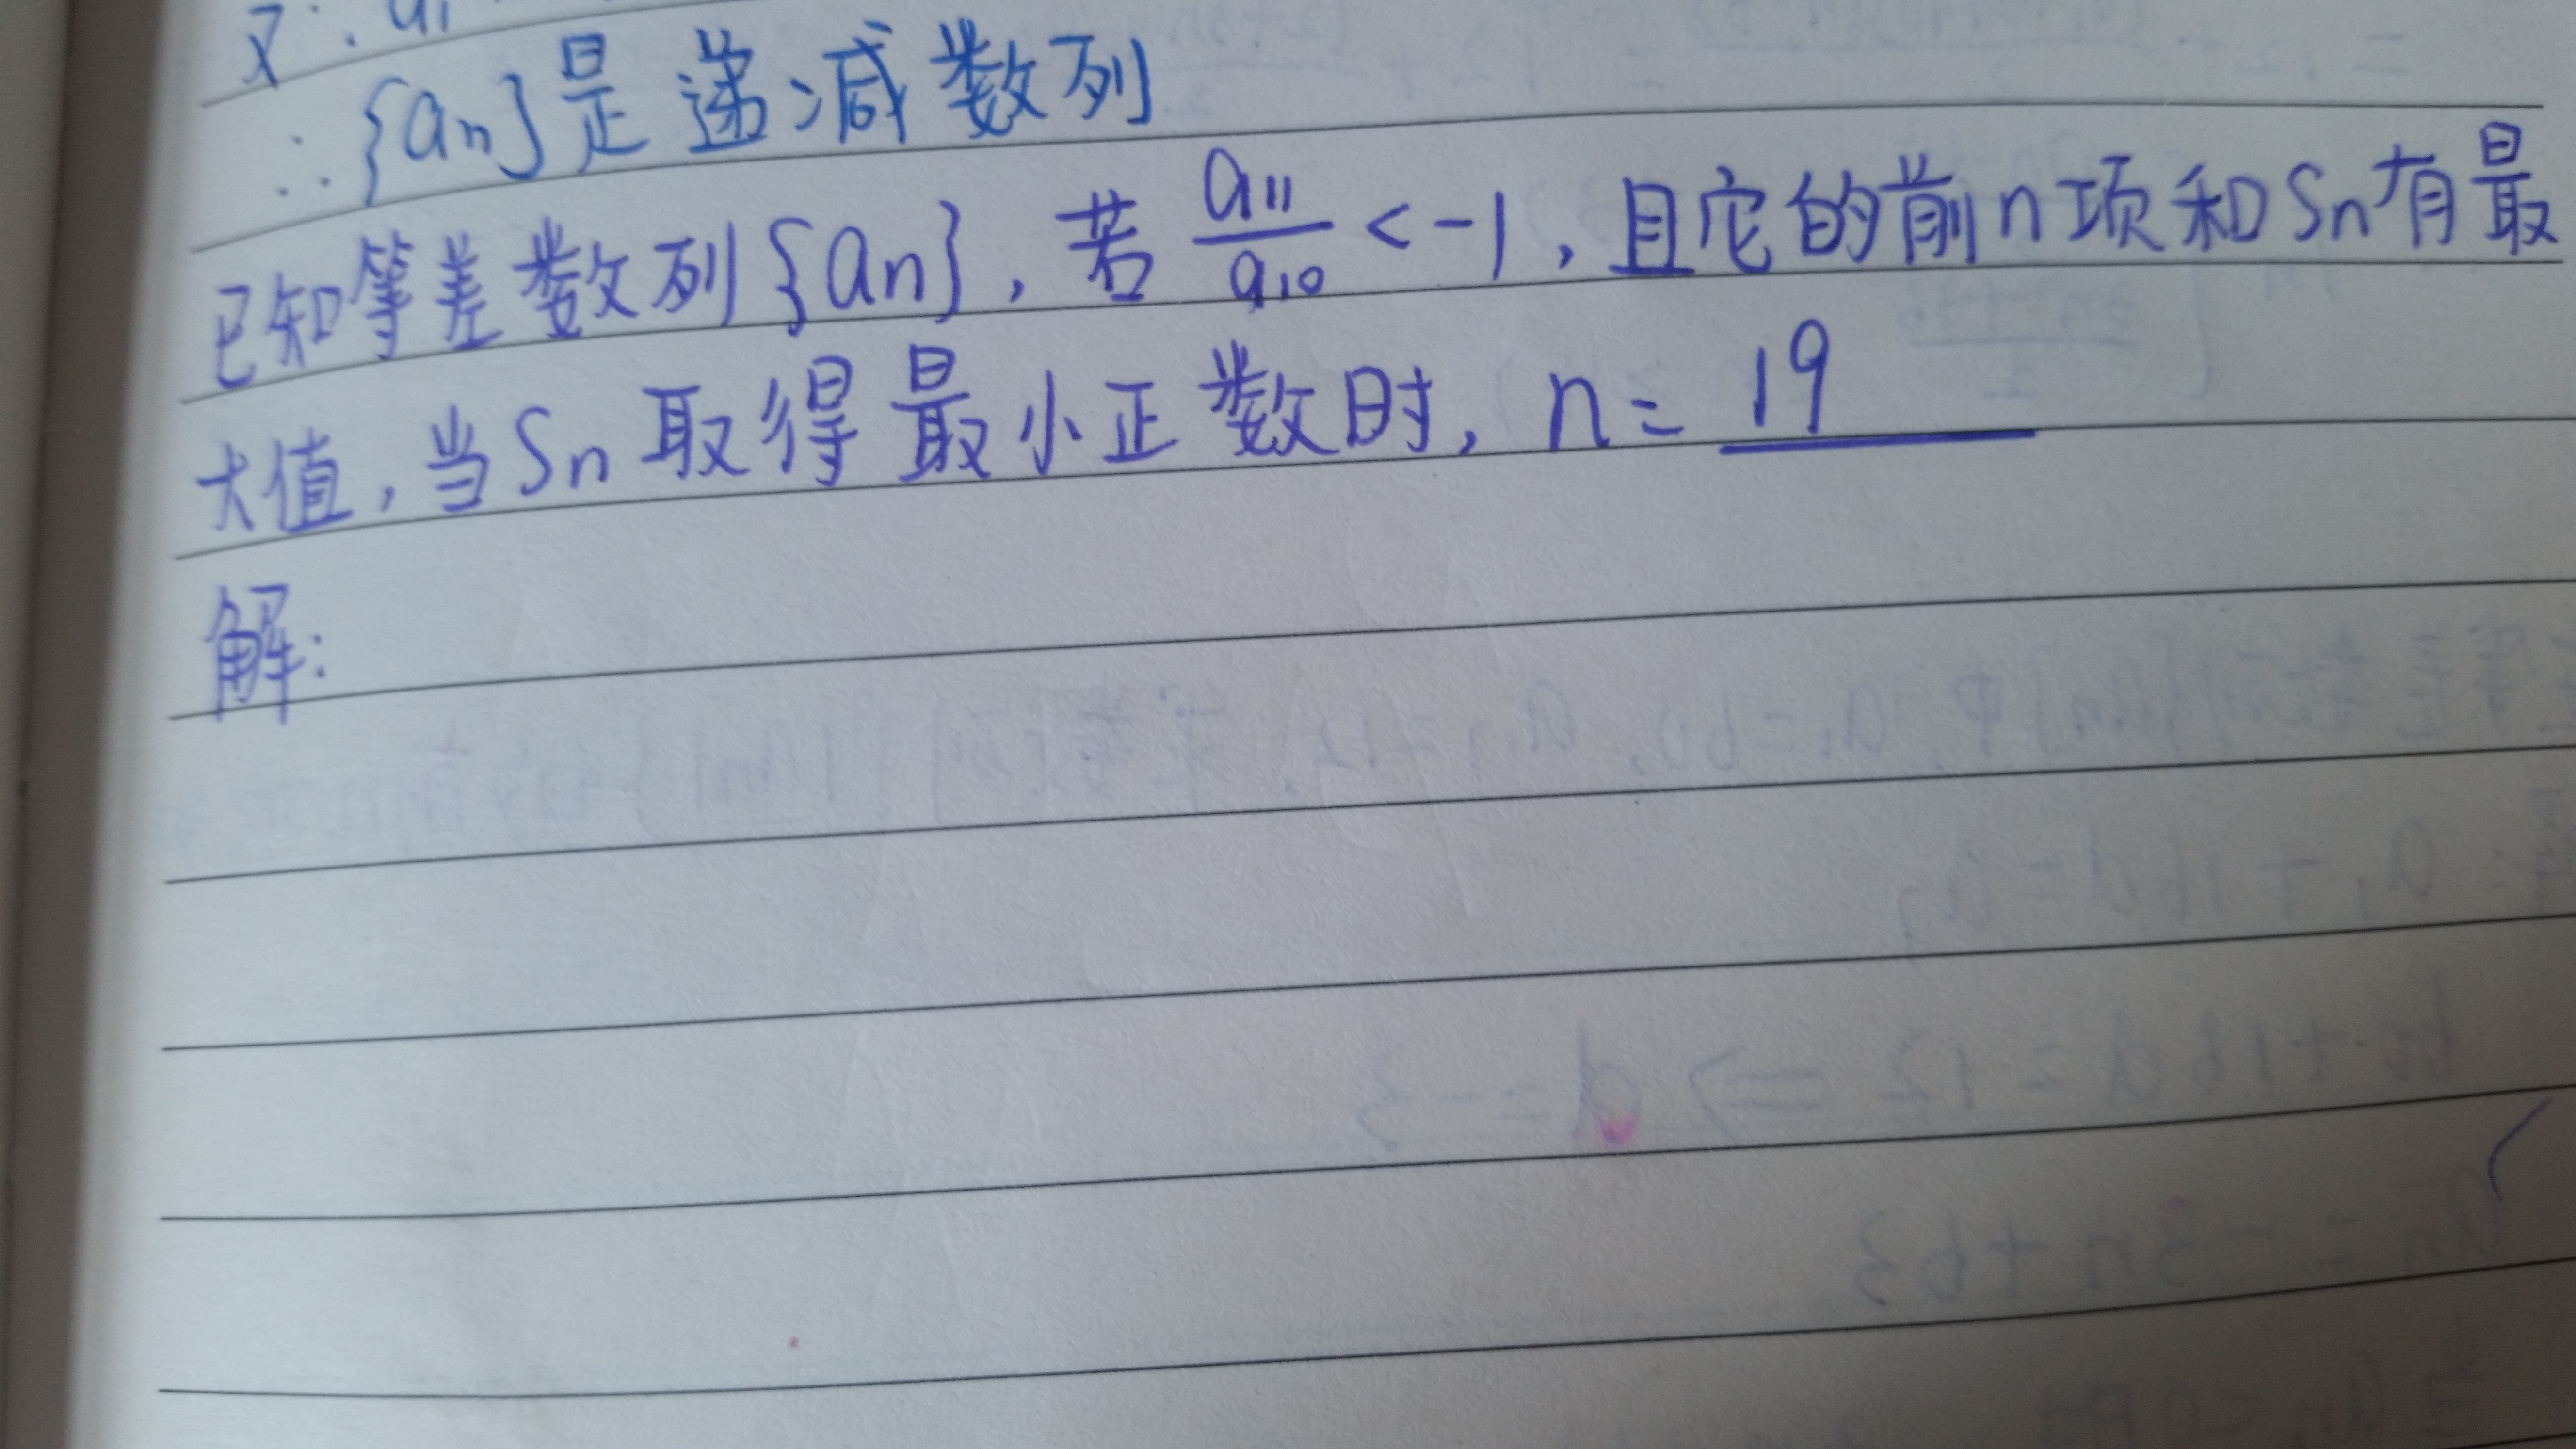 ∴{an}是递减数列
已知等差数列{an},若a11/a10<-1,且它的前n项和Sn有最
大值,当Sn取得最小正数时,n=19
解: